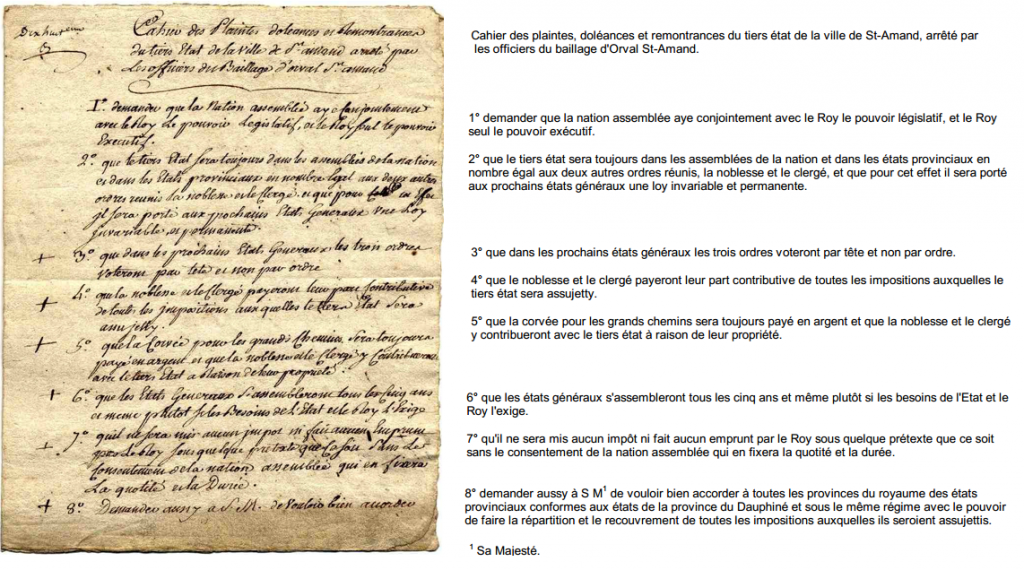 Dix huit eme
3
Cahier des Plaintes doleances et Remontrances
du tiers Etat de la Ville de St amand arreté par
Les officiers du Baillage d'orval St amand
1°. demander que la Nation assemblée aye conjointement
avec le Roy le pouvoir Legislatif, et le Roy seul le pouvoir
Executif.
2°. que le tiers Etat sera toujours dans les assemblées de la nation
et dans les Etats provinciaux en nombre Egal aux deux autres
ordres reunis la noblesse et le Clergé, et que pour cet Effet
il sera porté aux prochains Etats Generaux une Loy
Invariable et permanente.
+ 3°. que dans les prochains Etats Generaux les trois ordres
voteront par tête et non par ordre
+ 4°. que la noblesse et le Clergé payeront leur part Contributive
de toutes les Impositions aux quelles le tiers Etat sera
assujetty.
+ 5°. que la Corvée pour les grands Chemins sera toujours
payé en argent et que la noblesse et le Clergé y Contribueront
avec le tiers Etat a Raison de leur propriété.
+ 6°. que les Etats Generaux S'assembleront tous les Cinq ans
et meme plutot si les Besoins de l'Etat et le Roy l'Exige
+ 7°. qu'il ne sera mis aucun impot ni fait aucun Emprunt
par le Roy sous quelque pretexte que Ce soit Sans le
Consentement de la nation assemblée qui en fixera
La quotité et la Durée.
+ 8°. Demander aussy a S. M. de Vouloir bien accorder
Cahier des plaintes, doléances et remontrances du tiers état de la ville de St-Amand, arrêté par
les officiers du baillage d'Orval St-Amand.
1° demander que la nation assemblée aye conjointement avec le Roy le pouvoir législatif, et le Roy
seul le pouvoir exécutif.
2° que le tiers état sera toujours dans les assemblées de la nation et dans les états provinciaux en
nombre égal aux deux autres ordres réunis, la noblesse et le clergé, et que pour cet effet il sera porté
aux prochains états généraux une loy invariable et permanente.
3° que dans les prochains états généraux les trois ordres voteront par tête et non par ordre.
4° que le noblesse et le clergé payeront leur part contributive de toutes les impositions auxquelles le
tiers état sera assujetty.
5° que la corvée pour les grands chemins sera toujours payé en argent et que la noblesse et le clergé
y contribueront avec le tiers état à raison de leur propriété.
6° que les états généraux s'assembleront tous les cinq ans et même plutôt si les besoins de l'Etat et le
Roy l'exige.
7° qu'il ne sera mis aucun impôt ni fait aucun emprunt par le Roy sous quelque prétexte que ce soit
sans le consentement de la nation assemblée qui en fixera la quotité et la durée.
8° demander aussy à S M¹ de vouloir bien accorder à toutes les provinces du royaume des états
provinciaux conformes aux états de la province du Dauphiné et sous le même régime avec le pouvoir
de faire la répartition et le recouvrement de toutes les impositions auxquelles ils seroient assujettis.
¹ Sa Majesté.